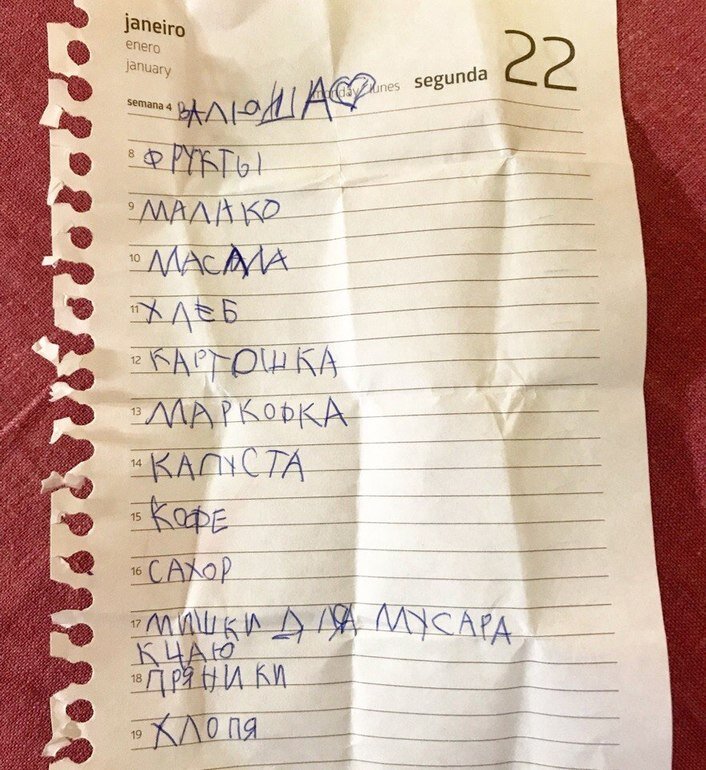 janeiro
enero
january
segunda 22
monday/lunes
semana 4
ВАЛЮША
8 ФРУКТЫ
9 МАЛАКО
10 МАСАЛА
11 ХЛЕБ
12 КАРТОШКА
13 МАРКОФКА
14 КАПУСТА
15 КОФЕ
16 САХОР
17 МИШКИ ДЛЯ МУСАРА
К ЧАЮ
18 ПРЯНИКИ
19 ХЛОПЯ